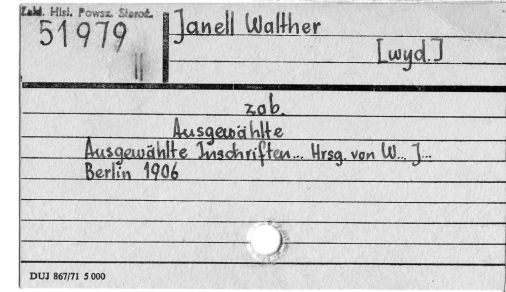 Zakł. Hist. Powsz. Staroż.
51979
II
Janell Walther
[wyd.]
zob.
Ausgewählte
Ausgewählte Inschriften... Hrsg. von W... J...
Berlin 1906
DUJ 867/71 5 000